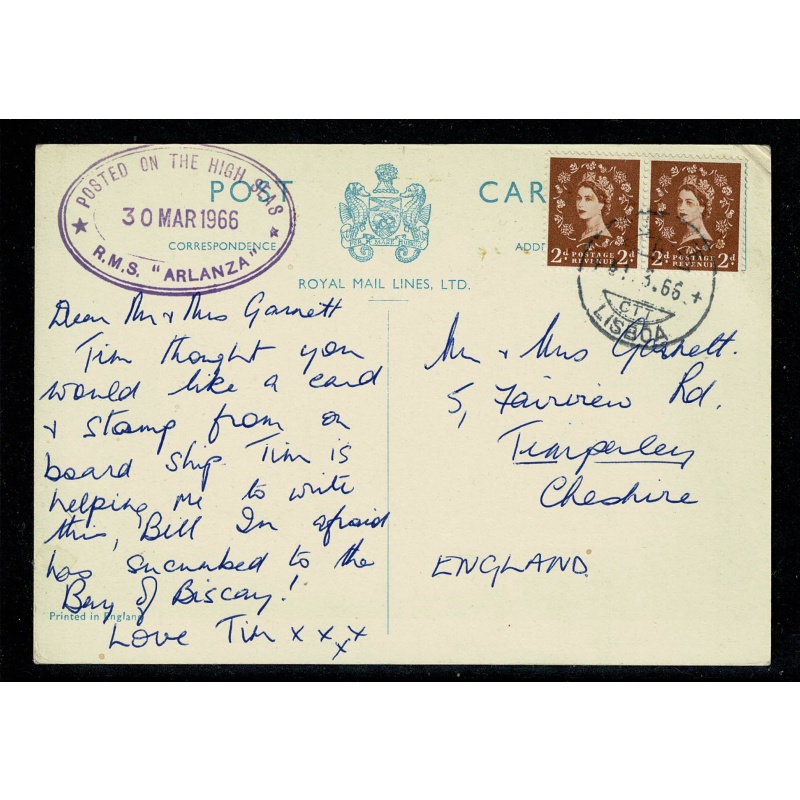 POSTED ON THE HIGH SEAS
30 MAR 1966
R.M.S. "ARLANZA"
POST CAR
CORRESPONDENCE
ADD
ROYAL MAIL LINES, LTD.
2d POSTAGE REVENUE 2d
2d POSTAGE REVENUE 2d
3.66
CTT
LISBOA
Dear Mr & Mrs Garnett
Tim thought you
would like a card
& stamp from on
board ship Tim is
helping me to write
this, Bill Im afraid
has sucumbed to the
Bay of Biscay!
Love Tim x x x x
Printed in England
Mr & Mrs Garnett.
5, Fairview Rd.
Timperley
Cheshire
ENGLAND.